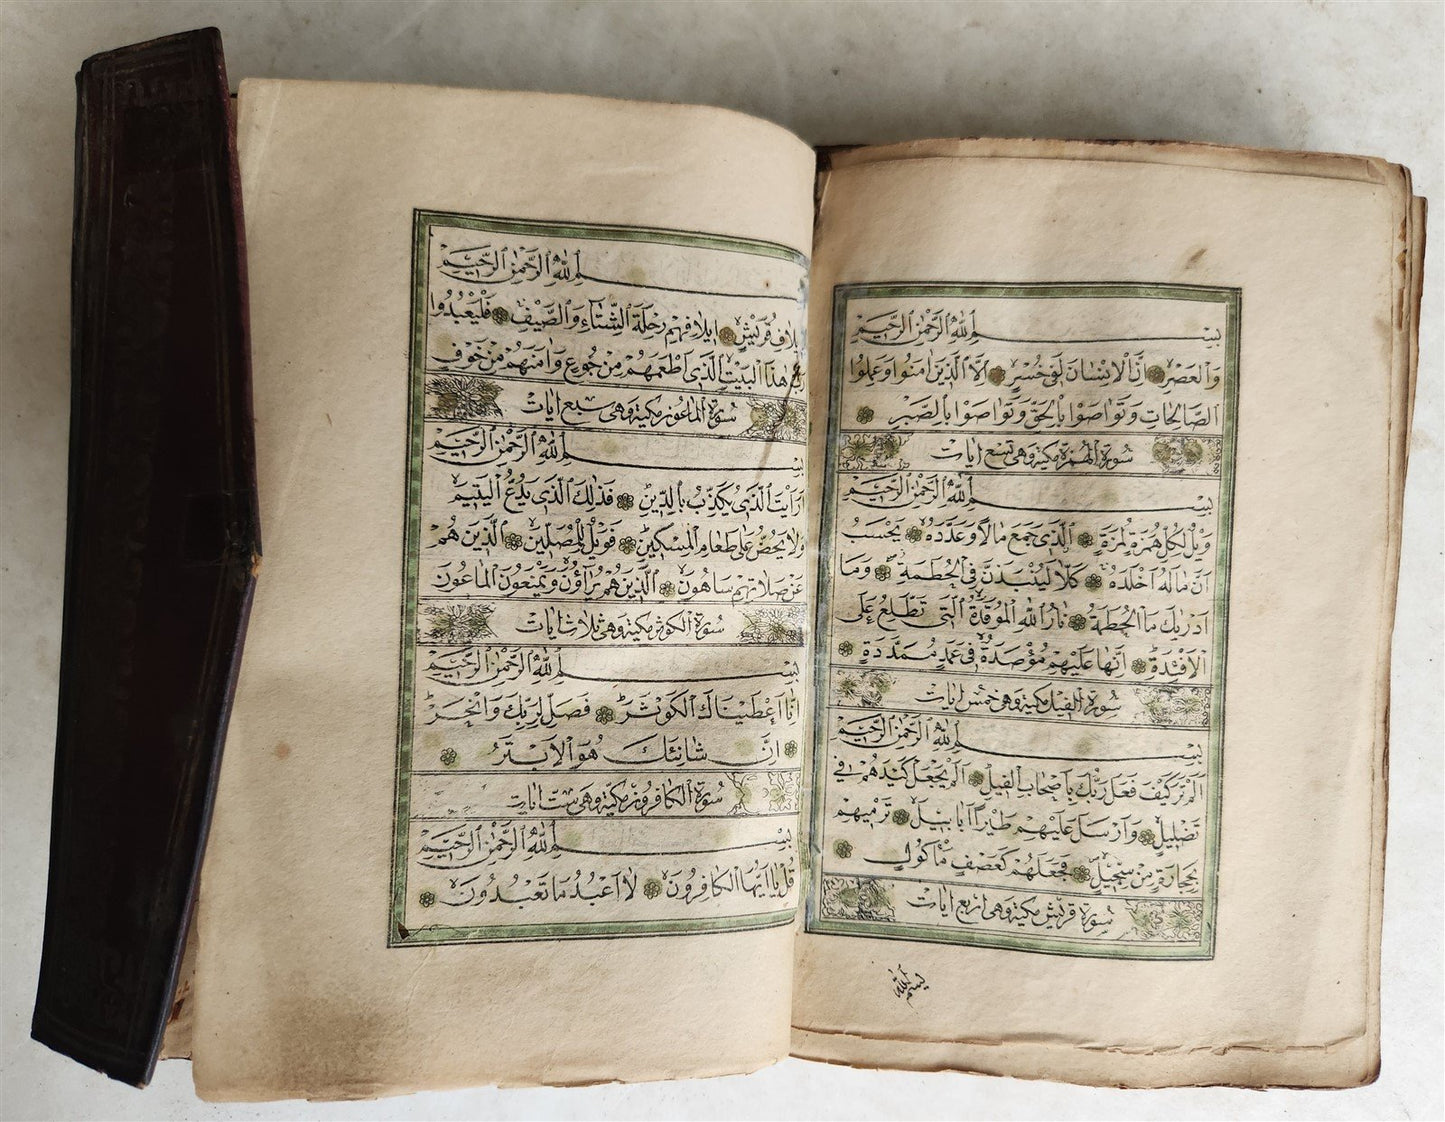 بسم الله الرحمن الرحيم
وَالْعَصْرِ اِنَّ الْاِنْسَانَ لَفِى خُسْرٍ اِلَّا الَّذِينَ اٰمَنُوا وَعَمِلُوا
الصَّالِحَاتِ وَتَوَاصَوْا بِالْحَقِّ وَتَوَاصَوْا بِالصَّبْرِ
سورة الهمزة مكية وهى تسع ايات
بسم الله الرحمن الرحيم
وَيْلٌ لِكُلِّ هُمَزَةٍ لُمَزَةٍ اَلَّذِى جَمَعَ مَالًا وَعَدَّدَهُ يَحْسَبُ
اَنَّ مَالَهُ اَخْلَدَهُ كَلَّا لَيُنْبَذَنَّ فِى الْحُطَمَةِ وَمَا
اَدْرٰيكَ مَا الْحُطَمَةُ نَارُ اللّٰهِ الْمُوقَدَةُ الَّتِى تَطَّلِعُ عَلَى
الْاَفْئِدَةِ اِنَّهَا عَلَيْهِمْ مُؤْصَدَةٌ فِى عَمَدٍ مُمَدَّدَةٍ
سورة الفيل مكية وهى خمس ايات
بسم الله الرحمن الرحيم
اَلَمْ تَرَ كَيْفَ فَعَلَ رَبُّكَ بِاَصْحَابِ الْفِيلِ اَلَمْ يَجْعَلْ كَيْدَهُمْ فِى
تَضْلِيلٍ وَاَرْسَلَ عَلَيْهِمْ طَيْرًا اَبَابِيلَ تَرْمِيهِمْ
بِحِجَارَةٍ مِنْ سِجِّيلٍ فَجَعَلَهُمْ كَعَصْفٍ مَأْكُولٍ
سورة قريش مكية وهى اربع ايات
بسم الله
بسم الله الرحمن الرحيم
لِايلَافِ قُرَيْشٍ اِيلَافِهِمْ رِحْلَةَ الشِّتَاءِ وَالصَّيْفِ فَلْيَعْبُدُوا
رَبَّ هٰذَا الْبَيْتِ الَّذِى اَطْعَمَهُمْ مِنْ جُوعٍ وَاٰمَنَهُمْ مِنْ خَوْفٍ
سورة الماعون مكية وهى سبع ايات
بسم الله الرحمن الرحيم
اَرَاَيْتَ الَّذِى يُكَذِّبُ بِالدِّينِ فَذٰلِكَ الَّذِى يَدُعُّ الْيَتِيمَ
وَلَا يَحُضُّ عَلٰى طَعَامِ الْمِسْكِينِ فَوَيْلٌ لِلْمُصَلِّينَ اَلَّذِينَ هُمْ
عَنْ صَلَاتِهِمْ سَاهُونَ اَلَّذِينَ هُمْ يُرَاؤُنَ وَيَمْنَعُونَ الْمَاعُونَ
سورة الكوثر مكية وهى ثلاث ايات
بسم الله الرحمن الرحيم
اِنَّا اَعْطَيْنَاكَ الْكَوْثَرَ فَصَلِّ لِرَبِّكَ وَانْحَرْ
اِنَّ شَانِئَكَ هُوَ الْاَبْتَرُ
سورة الكافرون مكية وهى ست ايات
بسم الله الرحمن الرحيم
قُلْ يَا اَيُّهَا الْكَافِرُونَ لَا اَعْبُدُ مَا تَعْبُدُونَ